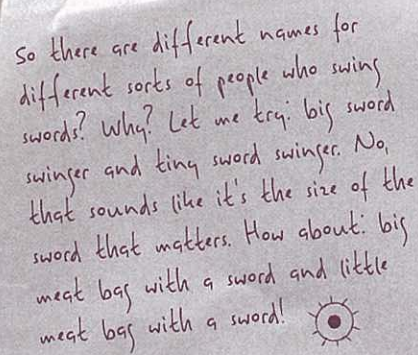 So there are different names for
different sorts of people who swing
swords? Why? Let me try: big sword
swinger and tiny sword swinger. No,
that sounds like it's the size of the
sword that matters. How about: big
meat bag with a sword and little
meat bag with a sword!